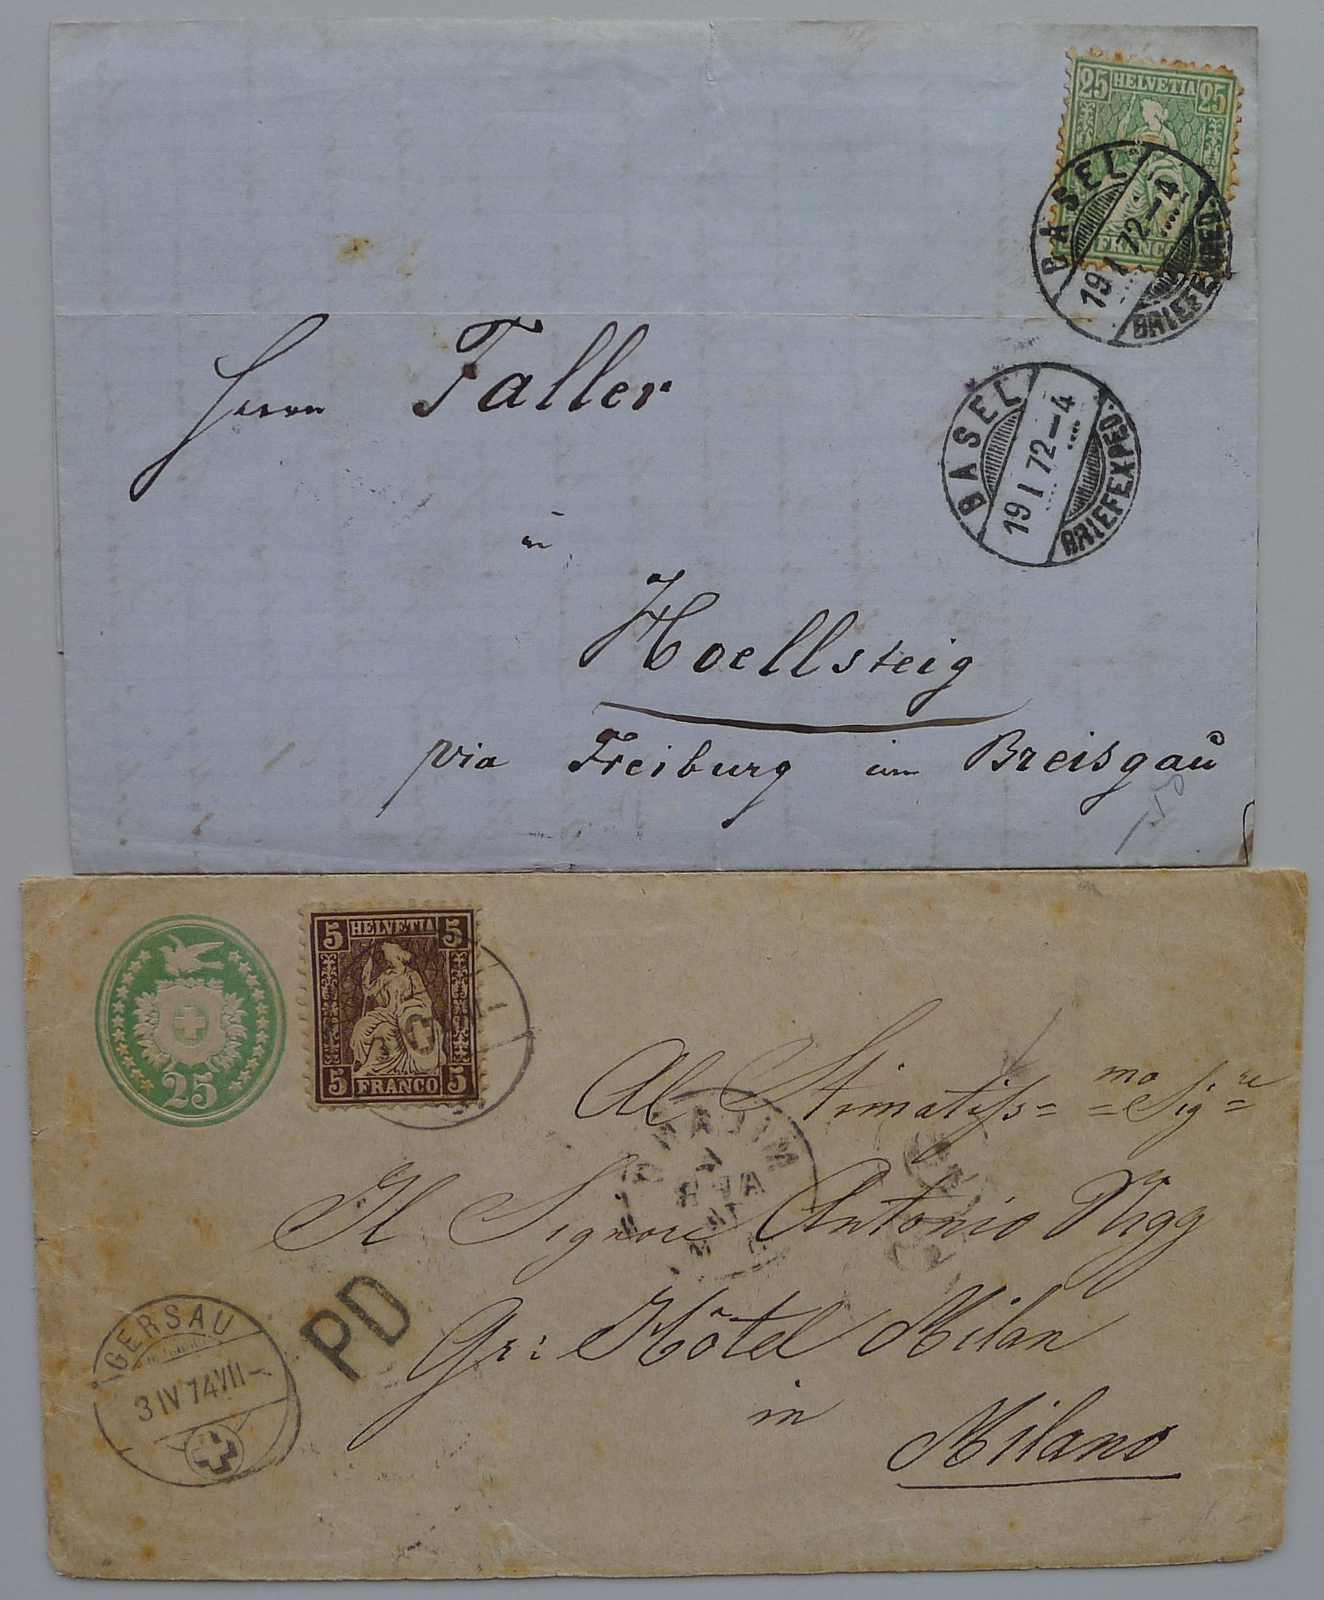 25 HELVETIA 25
FRANCO
BASEL
19 I 72-4
BRIEFEXPED.
BASEL
19 I 72-4
BRIEFEXPED.
Herrn Faller
in
Hoellsteig
via Freiburg im Breisgau
25
5 HELVETIA 5
5 FRANCO 5
Al Stimatiss= mo =Sig= re
Il Signore Antonio Nigg
Gr: Hôtel Milan
in
Milano
PD
GERSAU
3 IV 74 VII-
MILANO